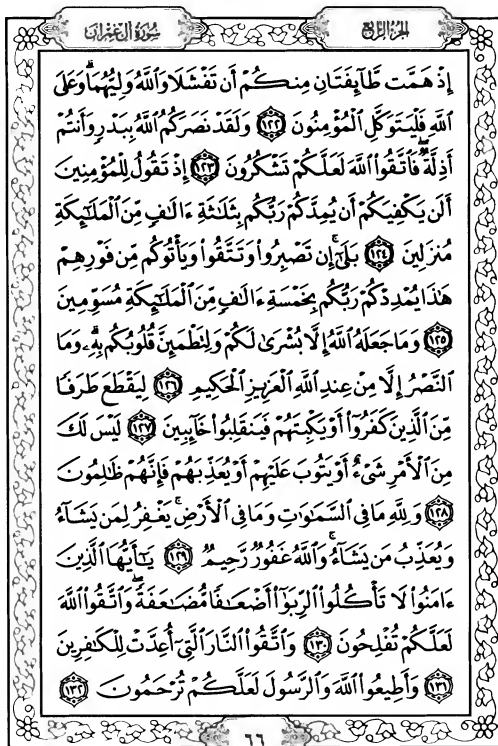 سُورَةُ آلِ عِمْرَانَ
الجُزْءُ الرَّابِعُ
إِذْ هَمَّت طَّآئِفَتَانِ مِنكُمْ أَن تَفْشَلَا وَٱللَّهُ وَلِيُّهُمَاۗ وَعَلَى
ٱللَّهِ فَلْيَتَوَكَّلِ ٱلْمُؤْمِنُونَ ١٢٢ وَلَقَدْ نَصَرَكُمُ ٱللَّهُ بِبَدْرٍ وَأَنتُمْ
أَذِلَّةٌۖ فَٱتَّقُوا۟ ٱللَّهَ لَعَلَّكُمْ تَشْكُرُونَ ١٢٣ إِذْ تَقُولُ لِلْمُؤْمِنِينَ
أَلَن يَكْفِيَكُمْ أَن يُمِدَّكُمْ رَبُّكُم بِثَلَٰثَةِ ءَالَٰفٍ مِّنَ ٱلْمَلَٰٓئِكَةِ
مُنزَلِينَ ١٢٤ بَلَىٰٓۚ إِن تَصْبِرُوا۟ وَتَتَّقُوا۟ وَيَأْتُوكُم مِّن فَوْرِهِمْ
هَٰذَا يُمْدِدْكُمْ رَبُّكُم بِخَمْسَةِ ءَالَٰفٍ مِّنَ ٱلْمَلَٰٓئِكَةِ مُسَوِّمِينَ
١٢٥ وَمَا جَعَلَهُ ٱللَّهُ إِلَّا بُشْرَىٰ لَكُمْ وَلِتَطْمَئِنَّ قُلُوبُكُم بِهِۦۗ وَمَا
ٱلنَّصْرُ إِلَّا مِنْ عِندِ ٱللَّهِ ٱلْعَزِيزِ ٱلْحَكِيمِ ١٢٦ لِيَقْطَعَ طَرَفًا
مِّنَ ٱلَّذِينَ كَفَرُوٓا۟ أَوْ يَكْبِتَهُمْ فَيَنقَلِبُوا۟ خَآئِبِينَ ١٢٧ لَيْسَ لَكَ
مِنَ ٱلْأَمْرِ شَىْءٌ أَوْ يَتُوبَ عَلَيْهِمْ أَوْ يُعَذِّبَهُمْ فَإِنَّهُمْ ظَٰلِمُونَ
١٢٨ وَلِلَّهِ مَا فِى ٱلسَّمَٰوَٰتِ وَمَا فِى ٱلْأَرْضِۚ يَغْفِرُ لِمَن يَشَآءُ
وَيُعَذِّبُ مَن يَشَآءُۚ وَٱللَّهُ غَفُورٌ رَّحِيمٌ ١٢٩ يَٰٓأَيُّهَا ٱلَّذِينَ
ءَامَنُوا۟ لَا تَأْكُلُوا۟ ٱلرِّبَوٰٓا۟ أَضْعَٰفًا مُّضَٰعَفَةًۖ وَٱتَّقُوا۟ ٱللَّهَ
لَعَلَّكُمْ تُفْلِحُونَ ١٣٠ وَٱتَّقُوا۟ ٱلنَّارَ ٱلَّتِىٓ أُعِدَّتْ لِلْكَٰفِرِينَ
١٣١ وَأَطِيعُوا۟ ٱللَّهَ وَٱلرَّسُولَ لَعَلَّكُمْ تُرْحَمُونَ ١٣٢
٦٦